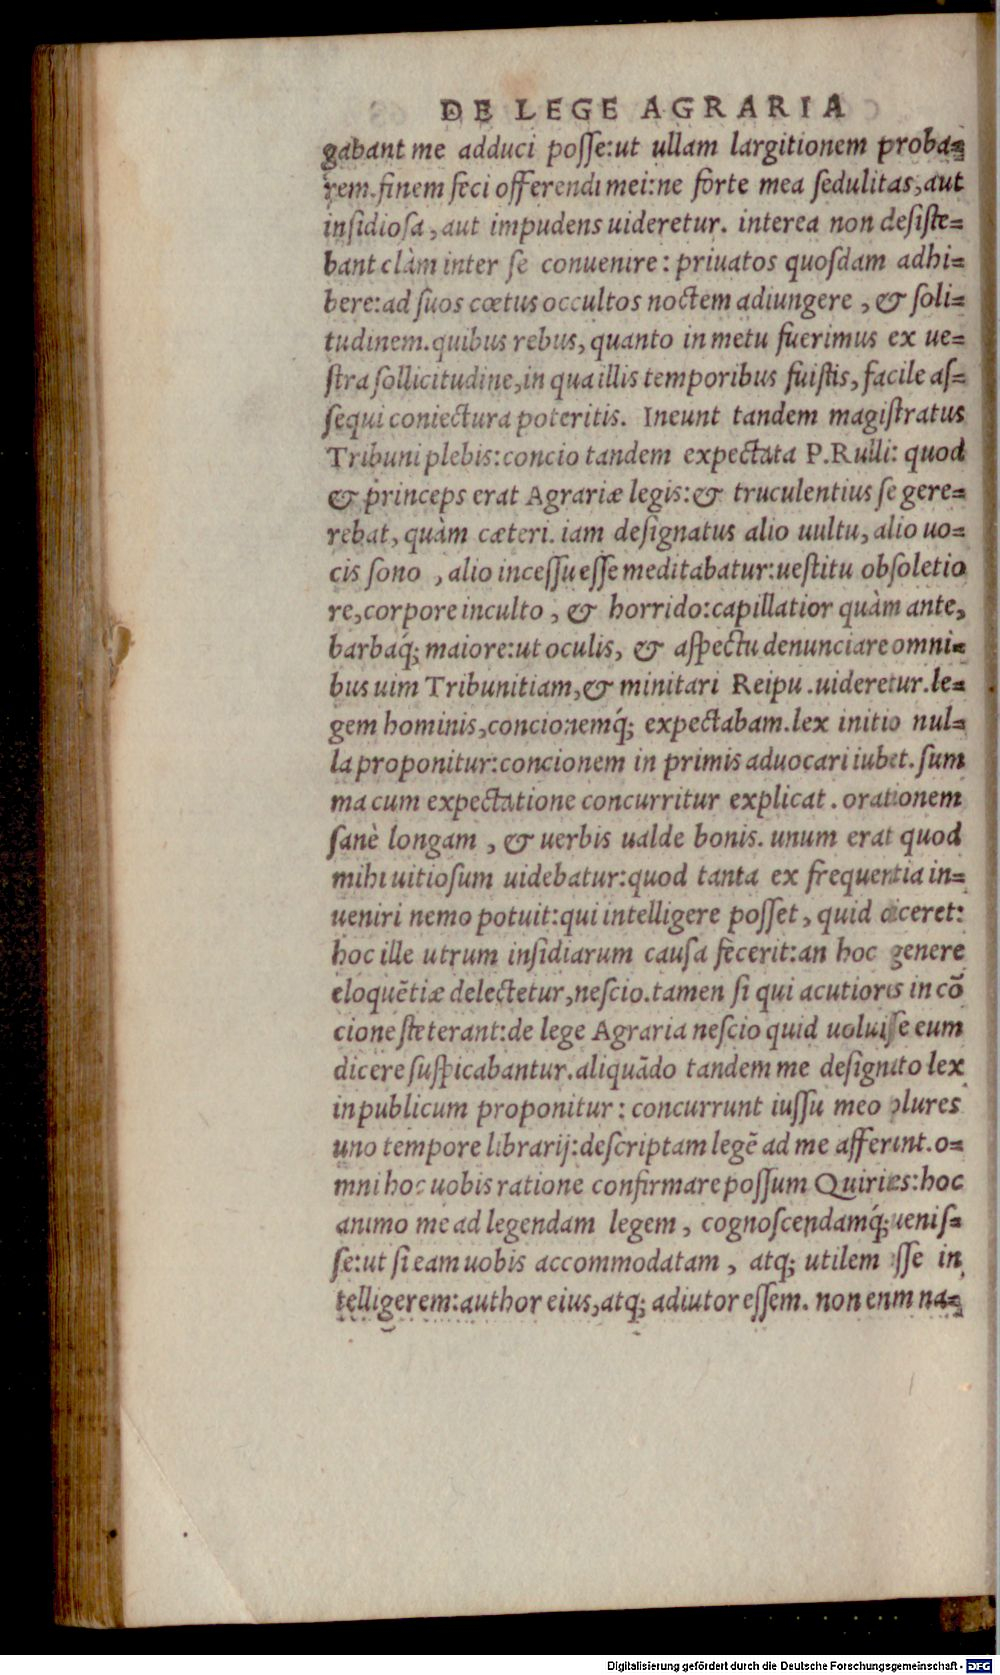 DE LEGE AGRARIA
gabant me adduci posse:ut ullam largitionem proba=
rem.finem feci offerendi mei:ne forte mea sedulitas,aut
insidiosa,aut impudens uideretur. interea non desiste=
bant clàm inter se conuenire: priuatos quosdam adhi=
bere:ad suos cœtus occultos noctem adiungere, & soli=
tudinem.quibus rebus, quanto in metu fuerimus ex ue=
stra sollicitudine,in qua illis temporibus fuistis, facile as=
sequi coniectura poteritis. Ineunt tandem magistratus
Tribuni plebis:concio tandem expectata P.Rulli: quod
& princeps erat Agrariæ legis:& truculentius se gere=
rebat, quàm cæteri. iam designatus alio uultu, alio uo=
cis sono, alio incessu esse meditabatur:uestitu obsoletio
re,corpore inculto, & horrido:capillatior quàm ante,
barbaq́; maiore:ut oculis, & aspectu denunciare omni=
bus uim Tribunitiam,& minitari Reipu.uideretur.le=
gem hominis,concionemq́; expectabam.lex initio nul=
la proponitur:concionem in primis aduocari iubet.sum
ma cum expectatione concurritur explicat. orationem
sanè longam, & uerbis ualde bonis. unum erat quod
mihi uitiosum uidebatur:quod tanta ex frequentia in=
ueniri nemo potuit:qui intelligere posset, quid diceret:
hoc ille utrum insidiarum causa fecerit:an hoc genere
eloquētiæ delectetur,nescio.tamen si qui acutiores in cō
cione steterant:de lege Agraria nescio quid uoluisse eum
dicere suspicabantur.aliquādo tandem me designato lex
in publicum proponitur: concurrunt iussu meo plures
uno tempore librarij:descriptam legē ad me afferunt.o=
mni hoc uobis ratione confirmare possum Quirites:hoc
animo me ad legendam legem, cognoscendamq́;uenis=
se:ut si eam uobis accommodatam, atq; utilem esse in
telligerem:author eius,atq; adiutor essem. non enim na=
Digitalisierung gefördert durch die Deutsche Forschungsgemeinschaft - DFG